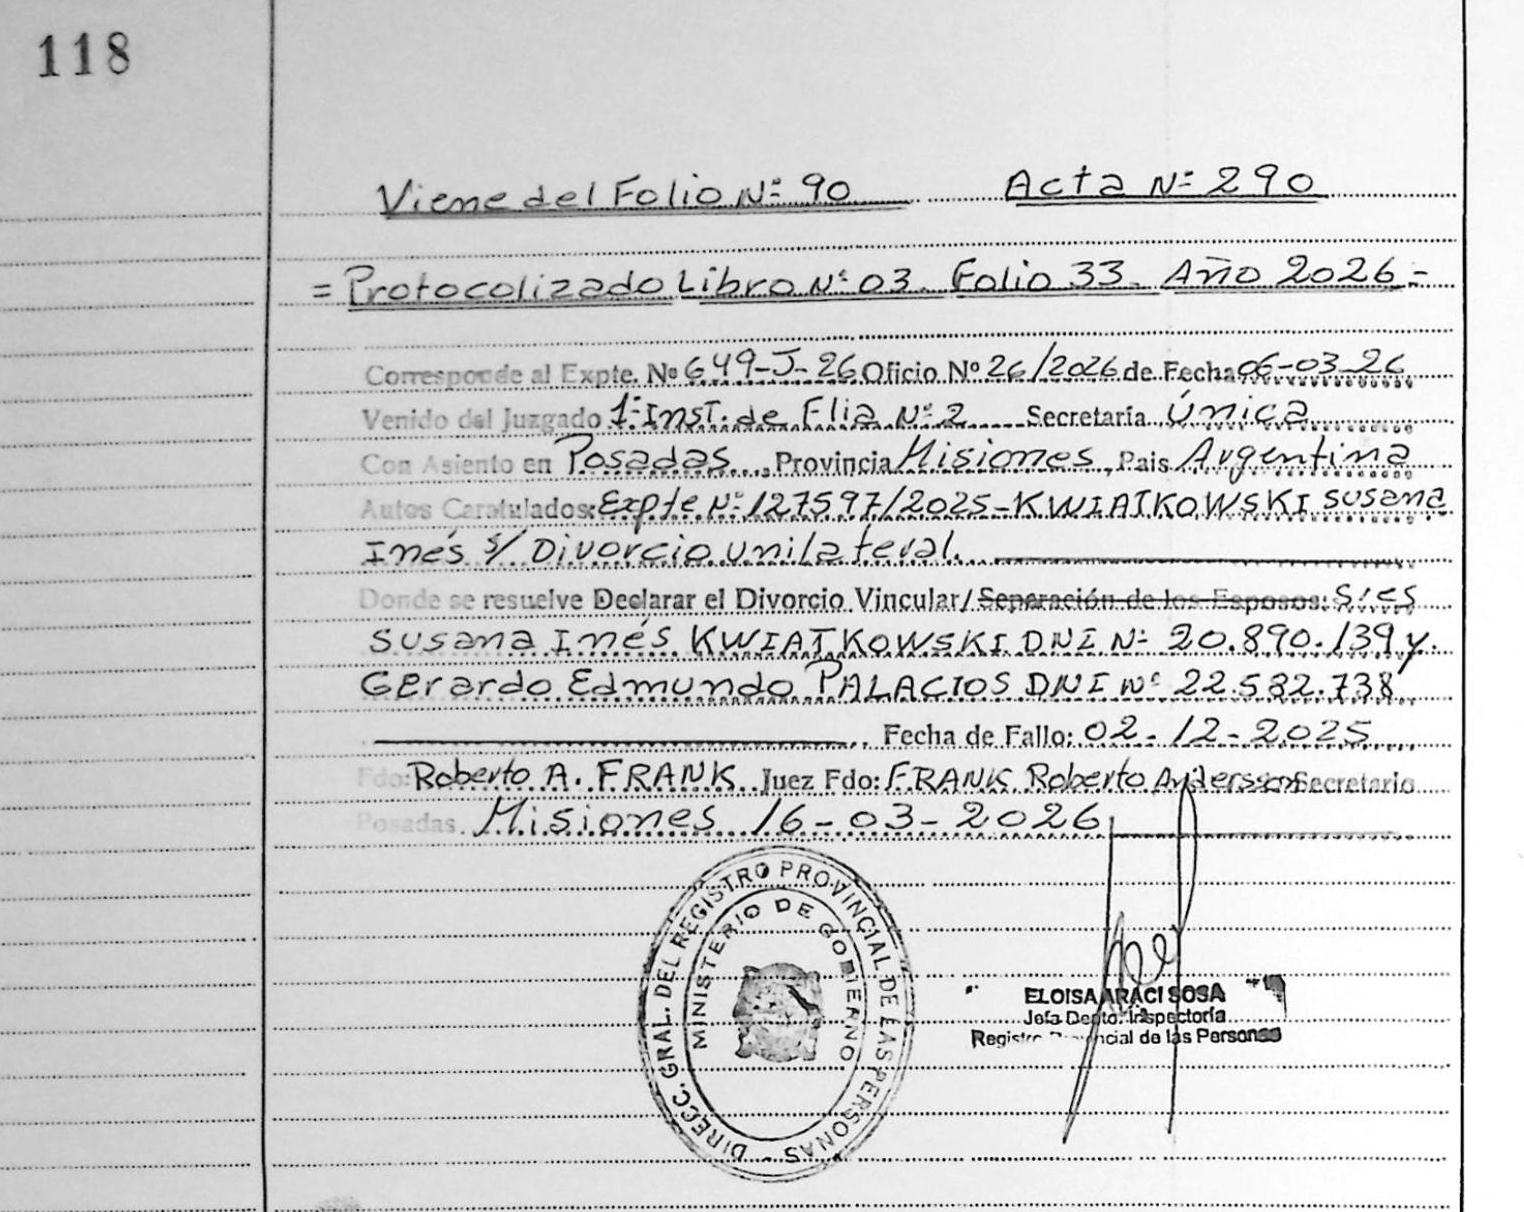 118
Viene del Folio Nº 90 Acta Nº 290
= Protocolizado Libro Nº 03. Folio 33. Año 2026 =
Corresponde al Expte. Nº 649-J-26 Oficio Nº 26/2026 de Fecha 06-03-26
Venido del Juzgado 1ª Inst. de Flia Nº 2 Secretaría Única
Con Asiento en Posadas, Provincia Misiones, Pais Argentina
Autos Caratulados: Expte Nº 127597/2025-KWIATKOWSKI Susana
Inés s/ Divorcio unilateral.
Donde se resuelve Declarar el Divorcio Vincular/Separación de los Esposos: Sres
Susana Inés KWIATKOWSKI DNI Nº 20.890.139 y
Gerardo Edmundo PALACIOS DNI Nº 22.582.738
Fecha de Fallo: 02-12-2025
Fdo: Roberto A. FRANK Juez Fdo: FRANK Roberto Andersson Secretario
Posadas. Misiones 16-03-2026
DIRECC. GRAL. DEL REGISTRO PROVINCIAL DE LAS PERSONAS -
MINISTERIO DE GOBIERNO
ELOISA ARACI SOSA
Jefa Depto. Inspectoría
Registro Provincial de las Personas